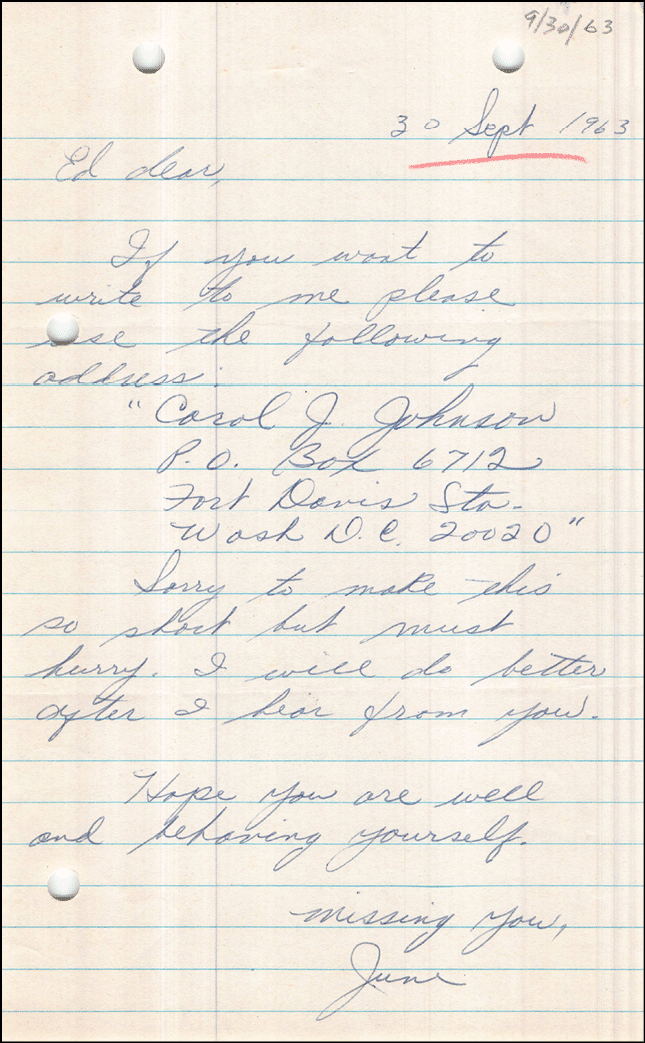 9/30/63
30 Sept 1963
Ed dear,
If you want to
write to me please
use the following
address:
"Carol J. Johnson
P.O. Box 6712
Fort Davis Sta.
Wash D.C. 20020"
Sorry to make this
so short but must
hurry. I will do better
after I hear from you.
Hope you are well
and behaving yourself.
Missing you,
June